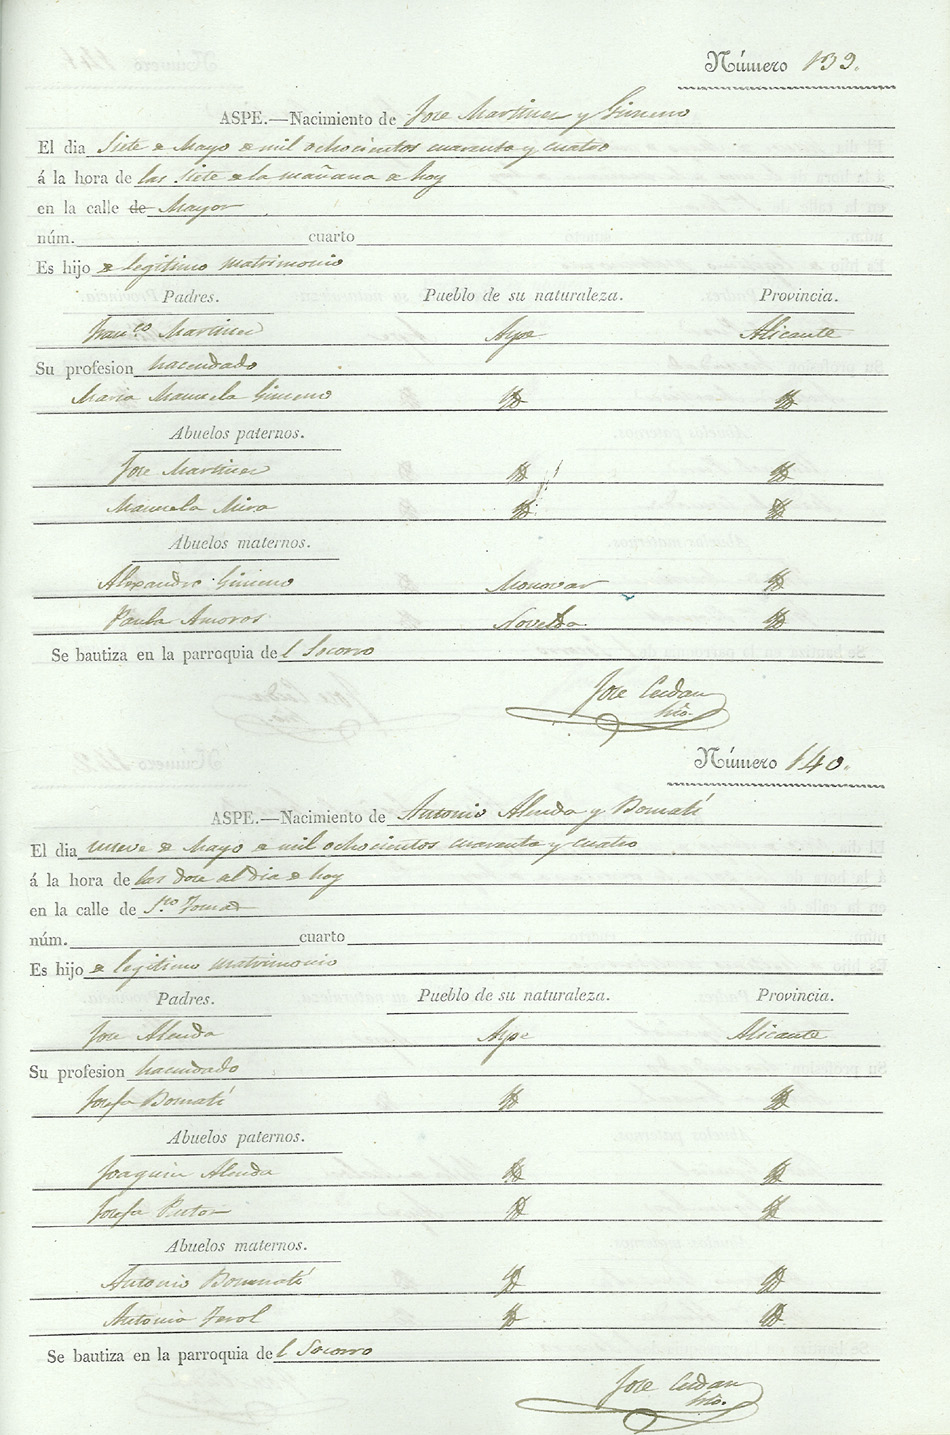 Número 139.
ASPE.—Nacimiento de Jose Martinez y Gimeno
El dia siete de Mayo de mil ochocientos cuarenta y cuatro
á la hora de las siete de la mañana de hoy
en la calle de Mayor
núm. cuarto
Es hijo de legitimo matrimonio
Padres. Pueblo de su naturaleza. Provincia.
Franco Martinez Aspe Alicante
Su profesion hacendado
Maria Manuela Gimeno
Abuelos paternos.
Jose Martinez
Manuela Mira
Abuelos maternos.
Alexandro Gimeno Monovar
Paula Amoros Novelda
Se bautiza en la parroquia del Socorro
Jose
Número 140.
ASPE.—Nacimiento de Antonio Alenda y Bomatí
El dia nueve de Mayo de mil ochocientos cuarenta y cuatro
á la hora de las doce del dia de hoy
en la calle de Sto Tomas
núm. cuarto
Es hijo de legitimo matrimonio
Padres. Pueblo de su naturaleza. Provincia.
Jose Alenda Aspe Alicante
Su profesion hacendado
Josefa Bomatí
Abuelos paternos.
Joaquin Alenda
Josefa
Abuelos maternos.
Antonio Bomatí
Antonia
Se bautiza en la parroquia del Socorro
Jose